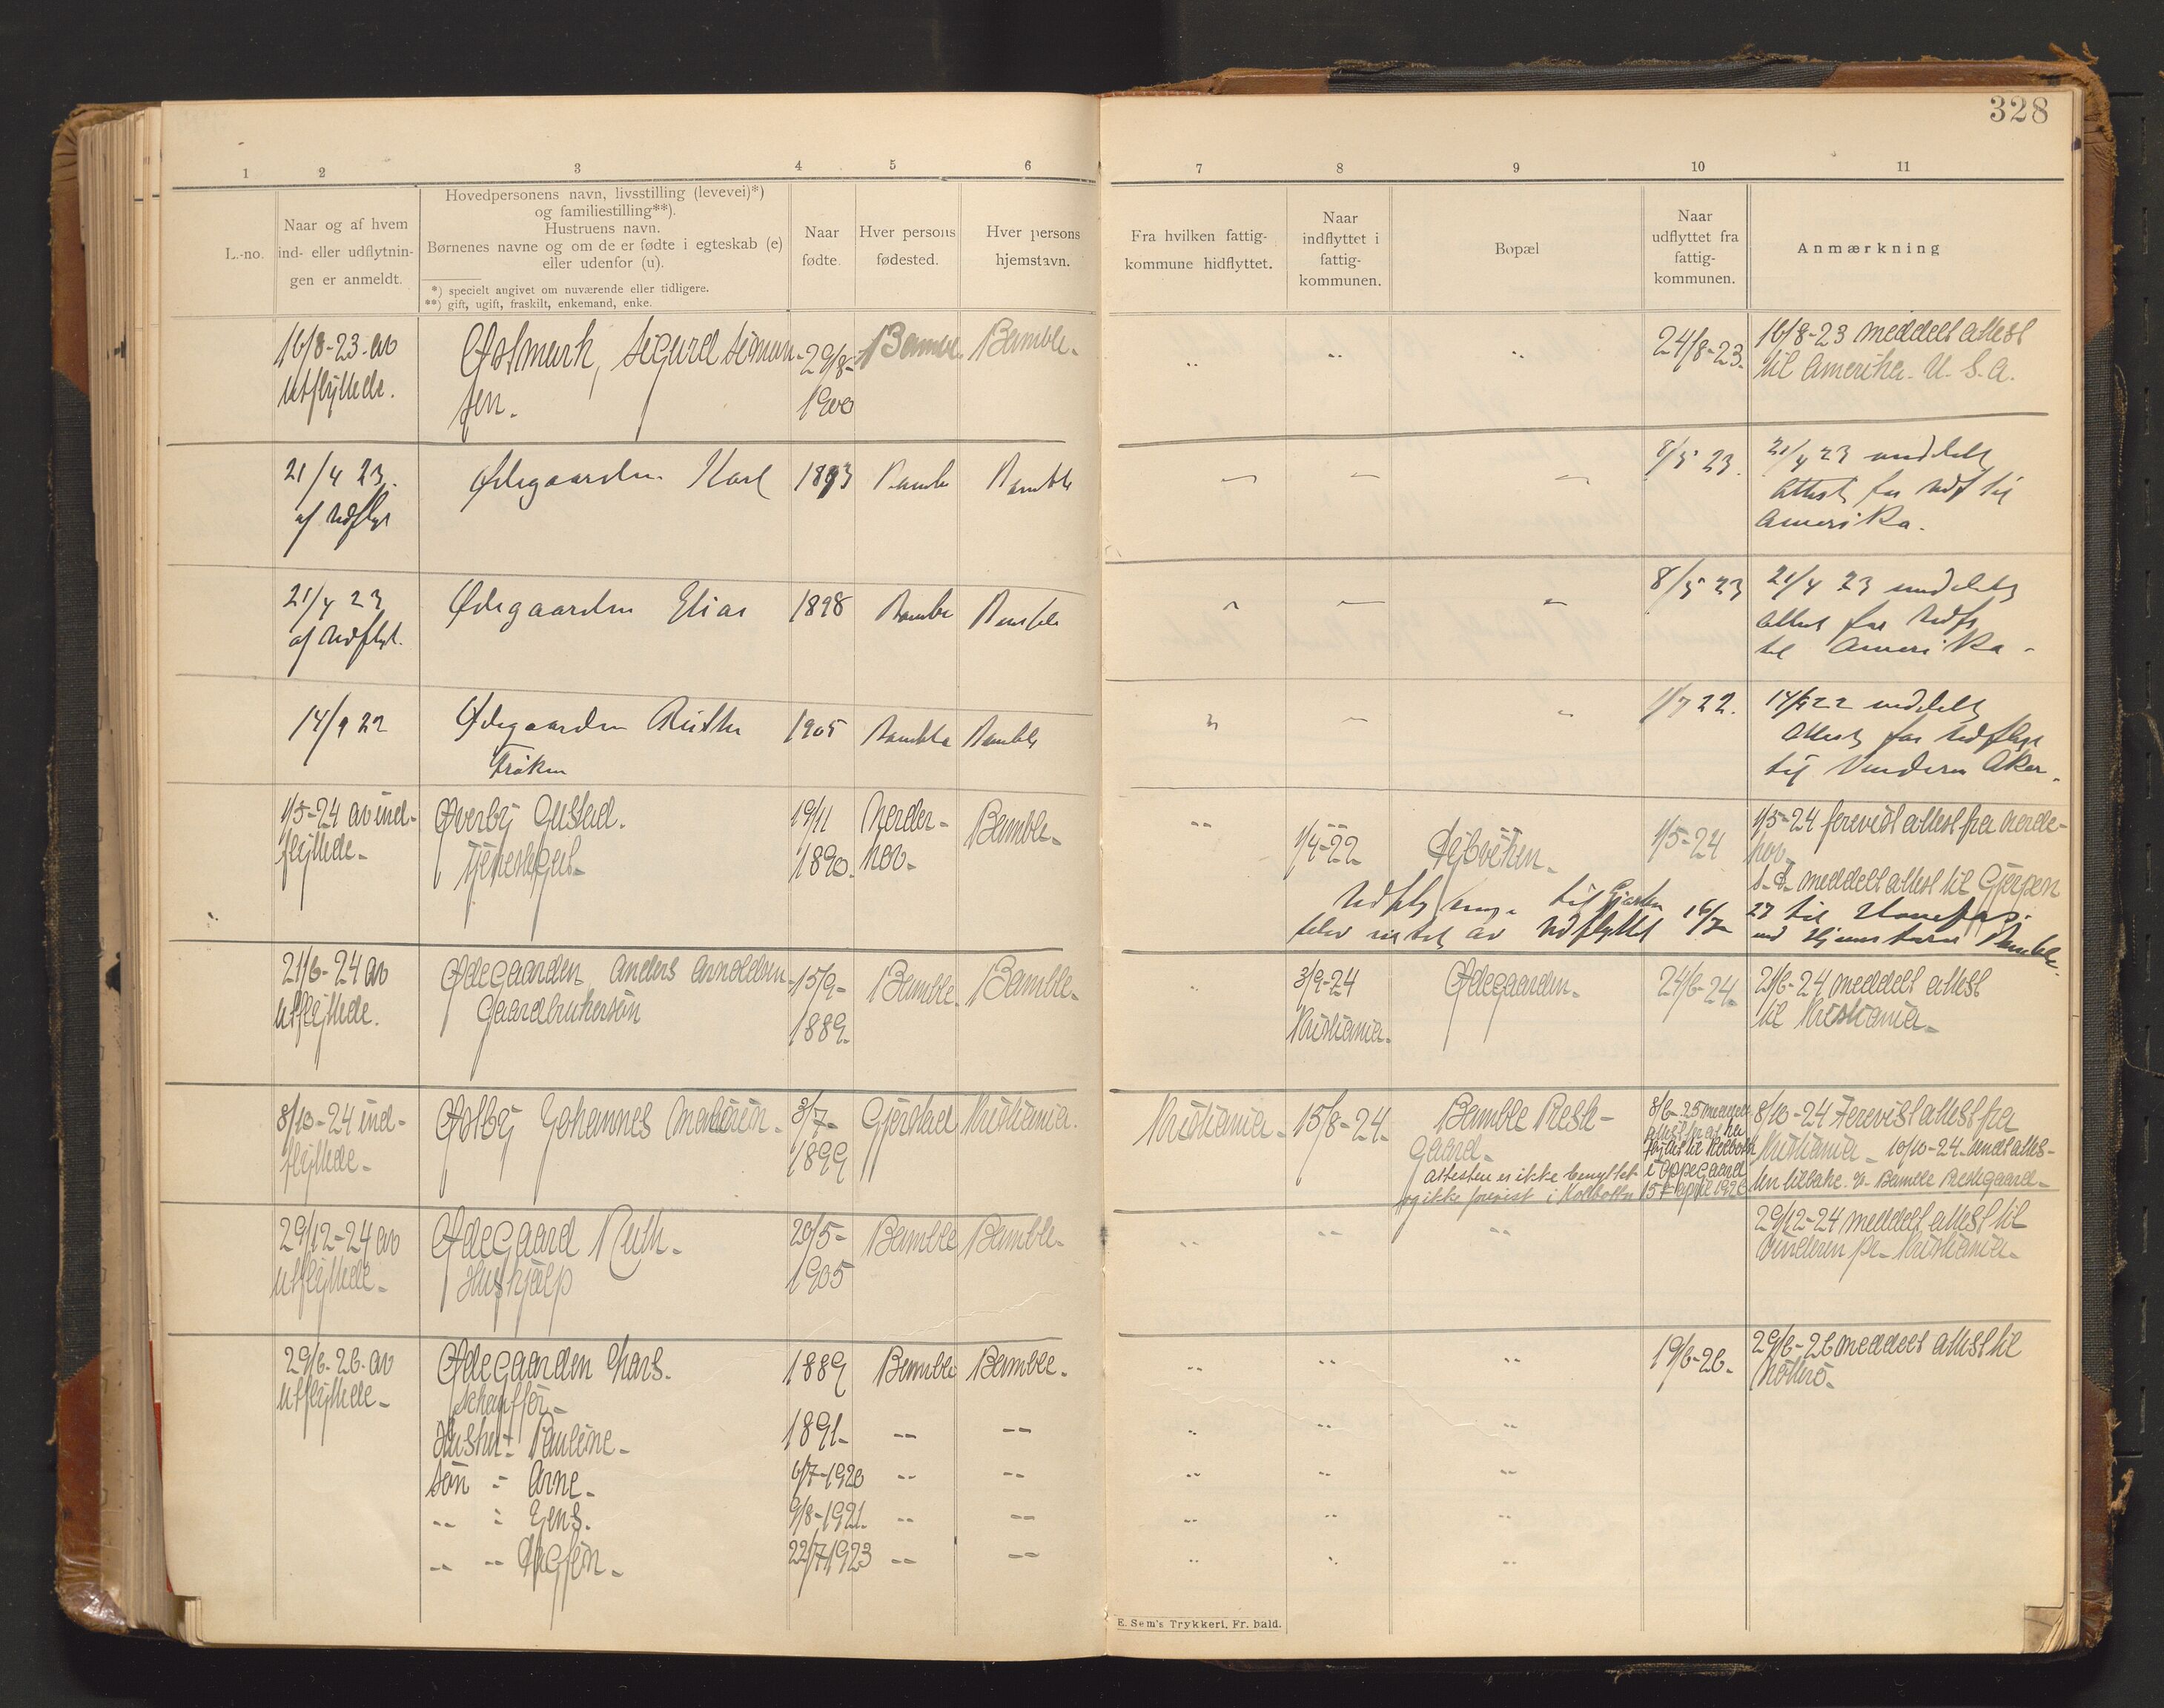 328
1 2 3 4 5 6 7 8 9 10 11
L.-no.
Naar og af hvem
ind- eller udflytnin-
gen er anmeldt.
Hovedpersonens navn, livsstilling (levevei)*)
og familiestilling**).
Hustruens navn.
Børnenes navne og om de er fødte i egteskab (e)
eller udenfor (u).
*) specielt angivet om nuværende eller tidligere.
**) gift, ugift, fraskilt, enkemand, enke.
Naar
fødte.
Hver persons
fødested.
Hver persons
hjemstavn.
Fra hvilken fattig-
kommune hidflyttet.
Naar
indflyttet i
fattig-
kommunen.
Bopæl
Naar
udflyttet fra
fattig-
kommunen.
Anmærkning
16/8-23. av
utflyttede.
Østmark, Sigurd Simon-
sen.
29/8-
1900
Bamble.
Bamble.
24/8-23.
16/8-23 meddelt attest
til Amerika. U. S. A.
21/4 23.
af Udflyt
Ødegaarden Karl
1893
Bamble
Bamble
8/5 23.
21/4 23 meddelt
Attest for Udf til
Amerika.
21/4 23
af Udflyt.
Ødegaarden Elias
1898
Bamble
Bamble
8/5 23
21/4 23 meddelt
Attest for Udfl
til Amerika.
14/9 22
Ødegaarden Ruth
Frøken
1905
Bamble
Bamble
1/7 22.
14/9 22 meddelt
Attest for Udflyt
til Vinderen Aker.
1/5-24 av ind-
flyttede.
Øverby Gustad.
19/11
1890.
Bamble.
1/4-22
1/5-24
1/5-24 forevist attest fra
s. d. meddelt attest til Gjerpen
Udflytning til Gjerpen
blev nektet av Udflyttet 16/7
27 til Honefos.
med Hjemstavn Bamble.
21/6-24 av
utflyttede.
Ødegaarden Anders Arnoldsen
Gaardbrukersøn
15/9-
1889.
Bamble.
Bamble.
3/9-24
Kristiania.
Ødegaarden.
24/6-24.
21/6-24 meddelt attest
til Kristiania.
8/10-24 ind-
flyttede.
Østby Johannes
3/7-
1899
Gjerstad
Kristiania.
Kristiania.
15/8-24.
Bamble Preste-
gaard.
Attesten er ikke benyttet
og ikke forevist i Kolbotn
8/6-25 meddelt
attest for at ha
flyttet til Kolbotn
i Oppegaard
15 april 1926
8/10-24 Forevist attest fra
Kristiania. 10/10-24. sendt attes-
ten tilbake. Bamble Prestegaard.
29/12-24 av
utflyttede.
Ødegaard Ruth.
Hushjælp
20/5-
1905
Bamble
Bamble.
29/12-24 meddelt attest til
Vinderen pr. Kristiania.
29/6-26. av
utflyttede.
Ødegaarden Lars.
Schauffør.
1889
Bamble
Bamble.
19/6-26.
29/6-26 meddelt attest til
Nøtterø.
Hustru: Pauline.
1891.
Søn : Arne.
6/7-1920
" : Jens.
9/8-1921.
22/7-1923
E. Sem's Trykkeri, Fr. hald.